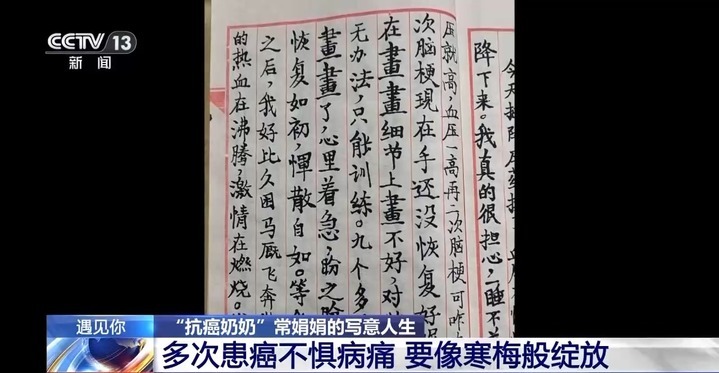 CCTV 13
新闻
今天
降下来。我真的很担心，一睡不
压就高，血压一高再二次脑梗可咋
次脑梗现在手还没恢复好
在畫畫细节上畫不好，对
无办法，只能训练。九个多
畫畫了，心里着急，盼之
恢复如初，惮散自如。等
之后，我好比久困马厩飞奔
的热血在沸腾，激情在燃烧。
遇见你
“抗癌奶奶”常娟娟的写意人生
多次患癌不惧病痛 要像寒梅般绽放